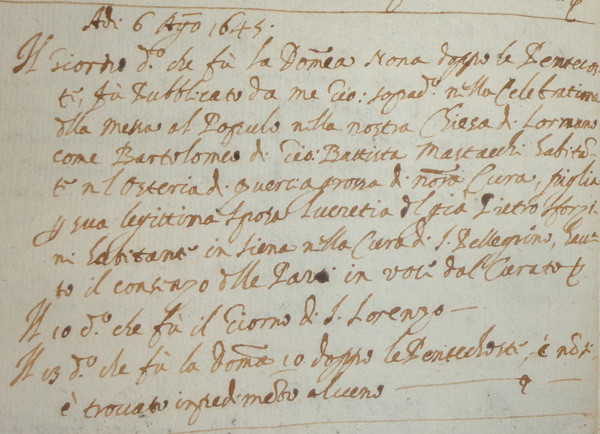 Adi 6 Ago 1645.
Il Giorno d.o che fù la Domca Nona doppo le Penteco-
ste, fù Pubblicato da me Gio: sopad.o nella Celebratione
della Messa al Populo nella nostra Chiesa di Lornano
come Bartolomeo di Gio: Battista Mastacchi habitā-
te nel Osteria di querciagrossa di nostra Cura, piglia
p sua legittima sposa Lucretia del già Pietro Sforzi-
ni habitante in Siena nella Cura di S. Pellegrino, hau-
to il consenzo delle Parti in voce dal Curato
Il 10 d.o che fù il Giorno di S. Lorenzo —
Il 13 d.o che fù la Doma 10 doppo le Pentechoste, e non si
è trovato inpedimento alcuno —